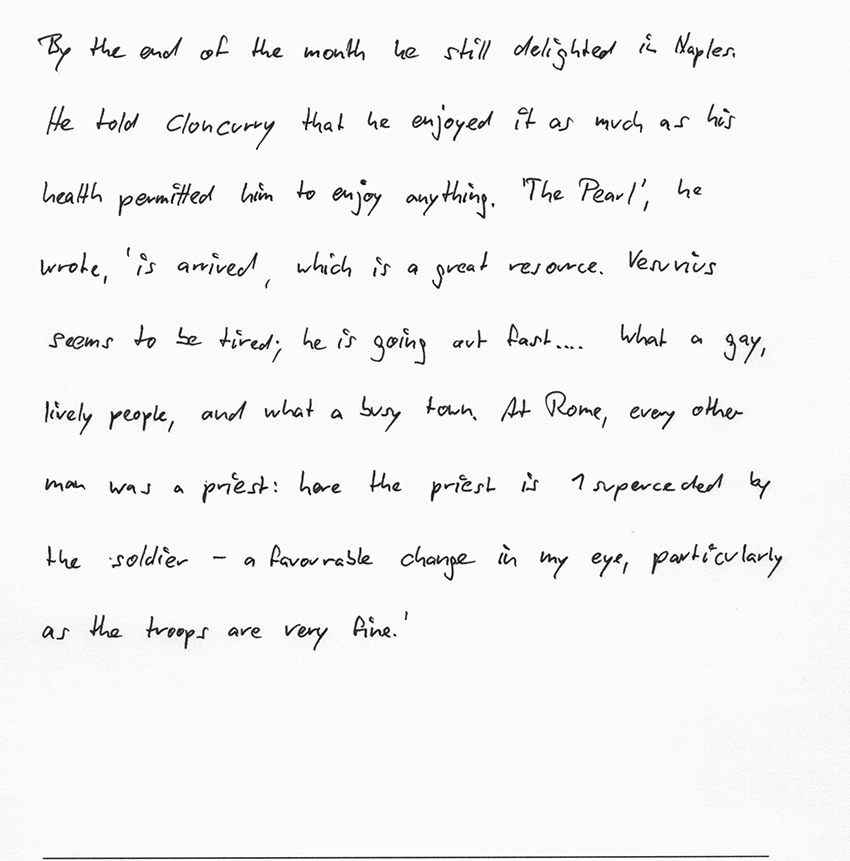 By the end of the month he still delighted in Naples.
He told Cloncurry that he enjoyed it as much as his
health permitted him to enjoy anything. 'The Pearl', he
wrote, 'is arrived, which is a great resource. Vesuvius
seems to be tired; he is going out fast.... What a gay,
lively people, and what a busy town. At Rome, every other
man was a priest: here the priest is 1superceded by
the soldier - a favourable change in my eye, particularly
as the troops are very fine.'